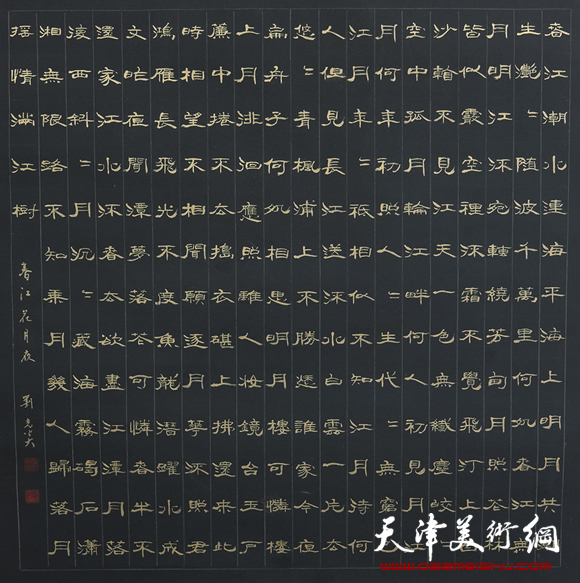 春江潮水連海平海上明月共
生灔〻随波千萬里何処春江無
月明江流宛轉繞芳甸月照花林
皆似霰空裡流霜不覺飛汀
沙看不見江天一色無纖塵皎〻
空中孤月輪江畔何人初見月
月何年初照人〻生代〻無窮
江月年〻祗相似不知江月待何
人但見長江送流水白雲一片去
悠〻青楓浦上不勝愁誰家今夜
扁舟子何処相思明月樓可憐樓
上月徘徊應照離人妝鏡台玉户
簾中捲不去搗衣砧上拂還来此
時相望不相聞願逐月華流照君
鴻雁長飛光不度魚龍潛躍水成
文昨夜閑潭夢落花可憐春半不
還家江水流春去欲盡江潭月落
復西斜〻月沉〻藏海霧碣石瀟
湘無限路不知乘月幾人歸落月
搖情滿江樹
春江花月夜
天津美術網